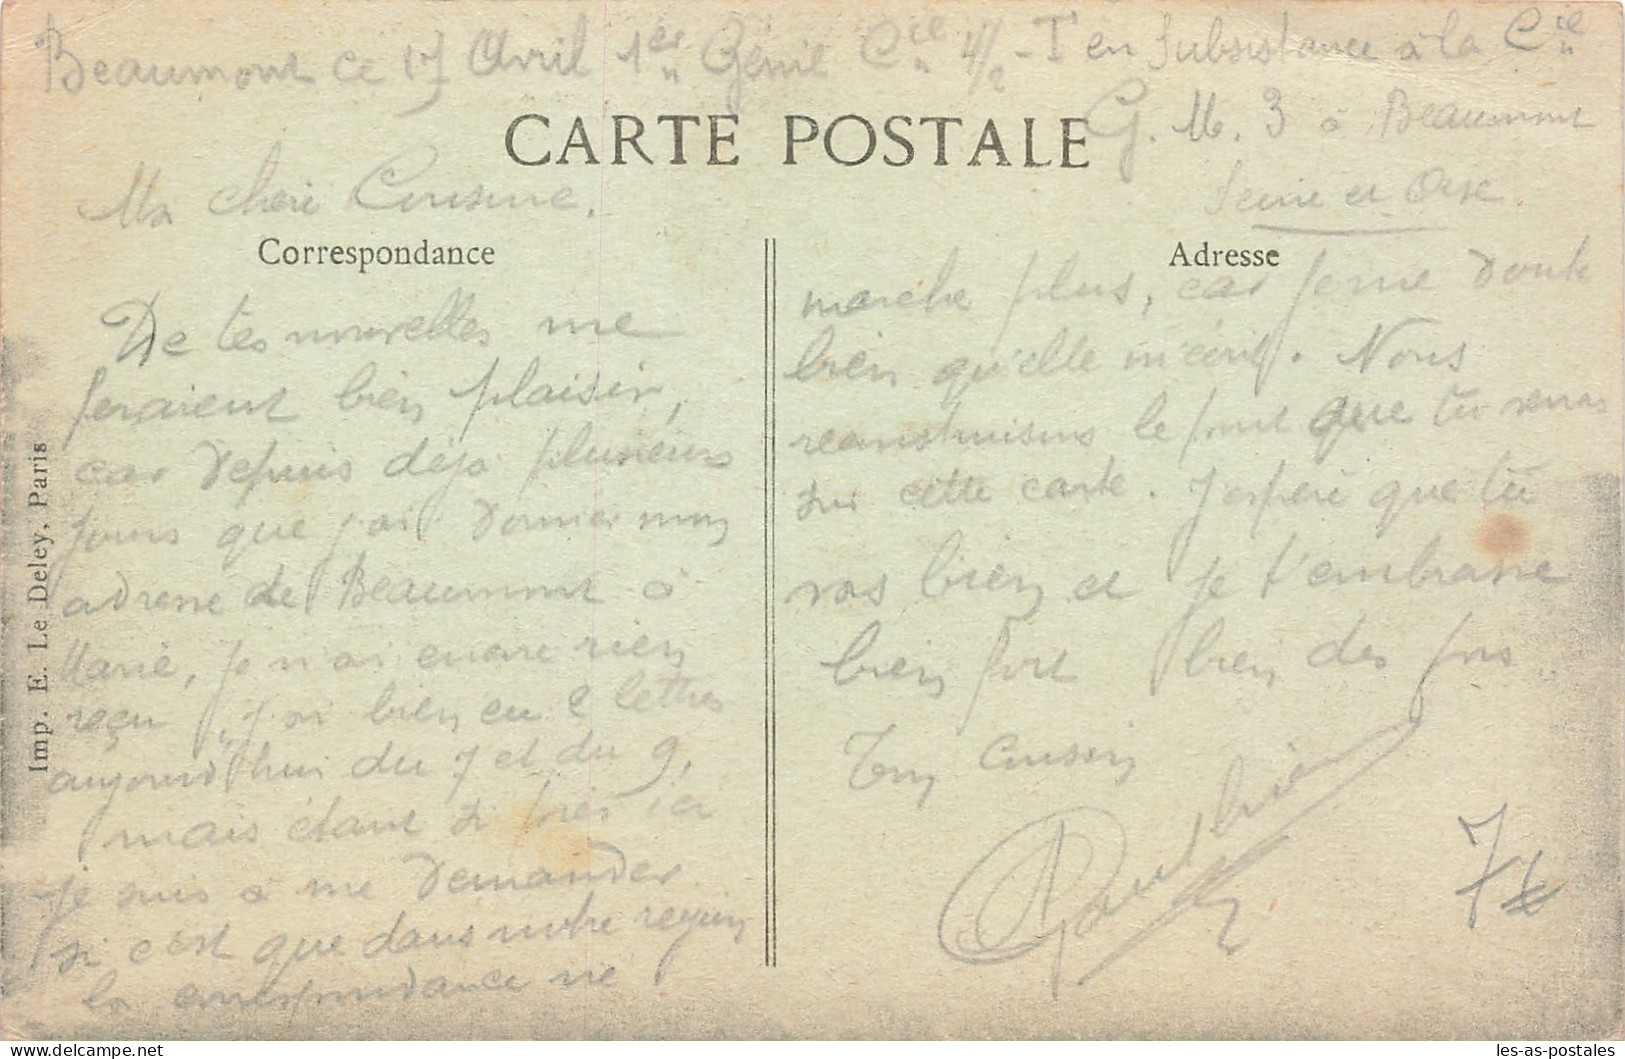 Beaumont ce 17 Avril 1er Génie Cie 4/2 - T en Subsistance à la Cie
G. M. 3 à Beaumont
Seine et Oise.
CARTE POSTALE
Ma cheri Cousine.
Correspondance
De tes nouvelles me
feraient bien plaisir,
car depuis déjà plusieurs
jours que j'ai donner mon
adresse de Beaumont à
Marie, je n'ai encore rien
reçu, j'ai bien eu 2 lettres
aujourd'hui du 7 et du 9,
mais étant si près ici
je suis à me demander
si c'est que dans notre region
la correspondance ne
Adresse
marche plus, car je me doute
bien qu'elle m'écrit. Nous
reconstruisons le pont que tu verras
sur cette carte. J'espère que tu
vas bien et je t'embrasse
bien fort bien des fois
Ton Cousin
Imp. E. Le Deley, Paris
les-as-postales